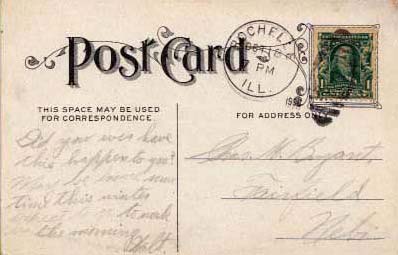 Post Card
ROCHELLE
7 PM
ILL.
THIS SPACE MAY BE USED
FOR CORRESPONDENCE.
FOR ADDRESS ONLY
Did you ever have
this happen to you?
May be
time this winter
to work
the morning
Walt.
Chas. M. Bryant,
Fairfield
Nebr.